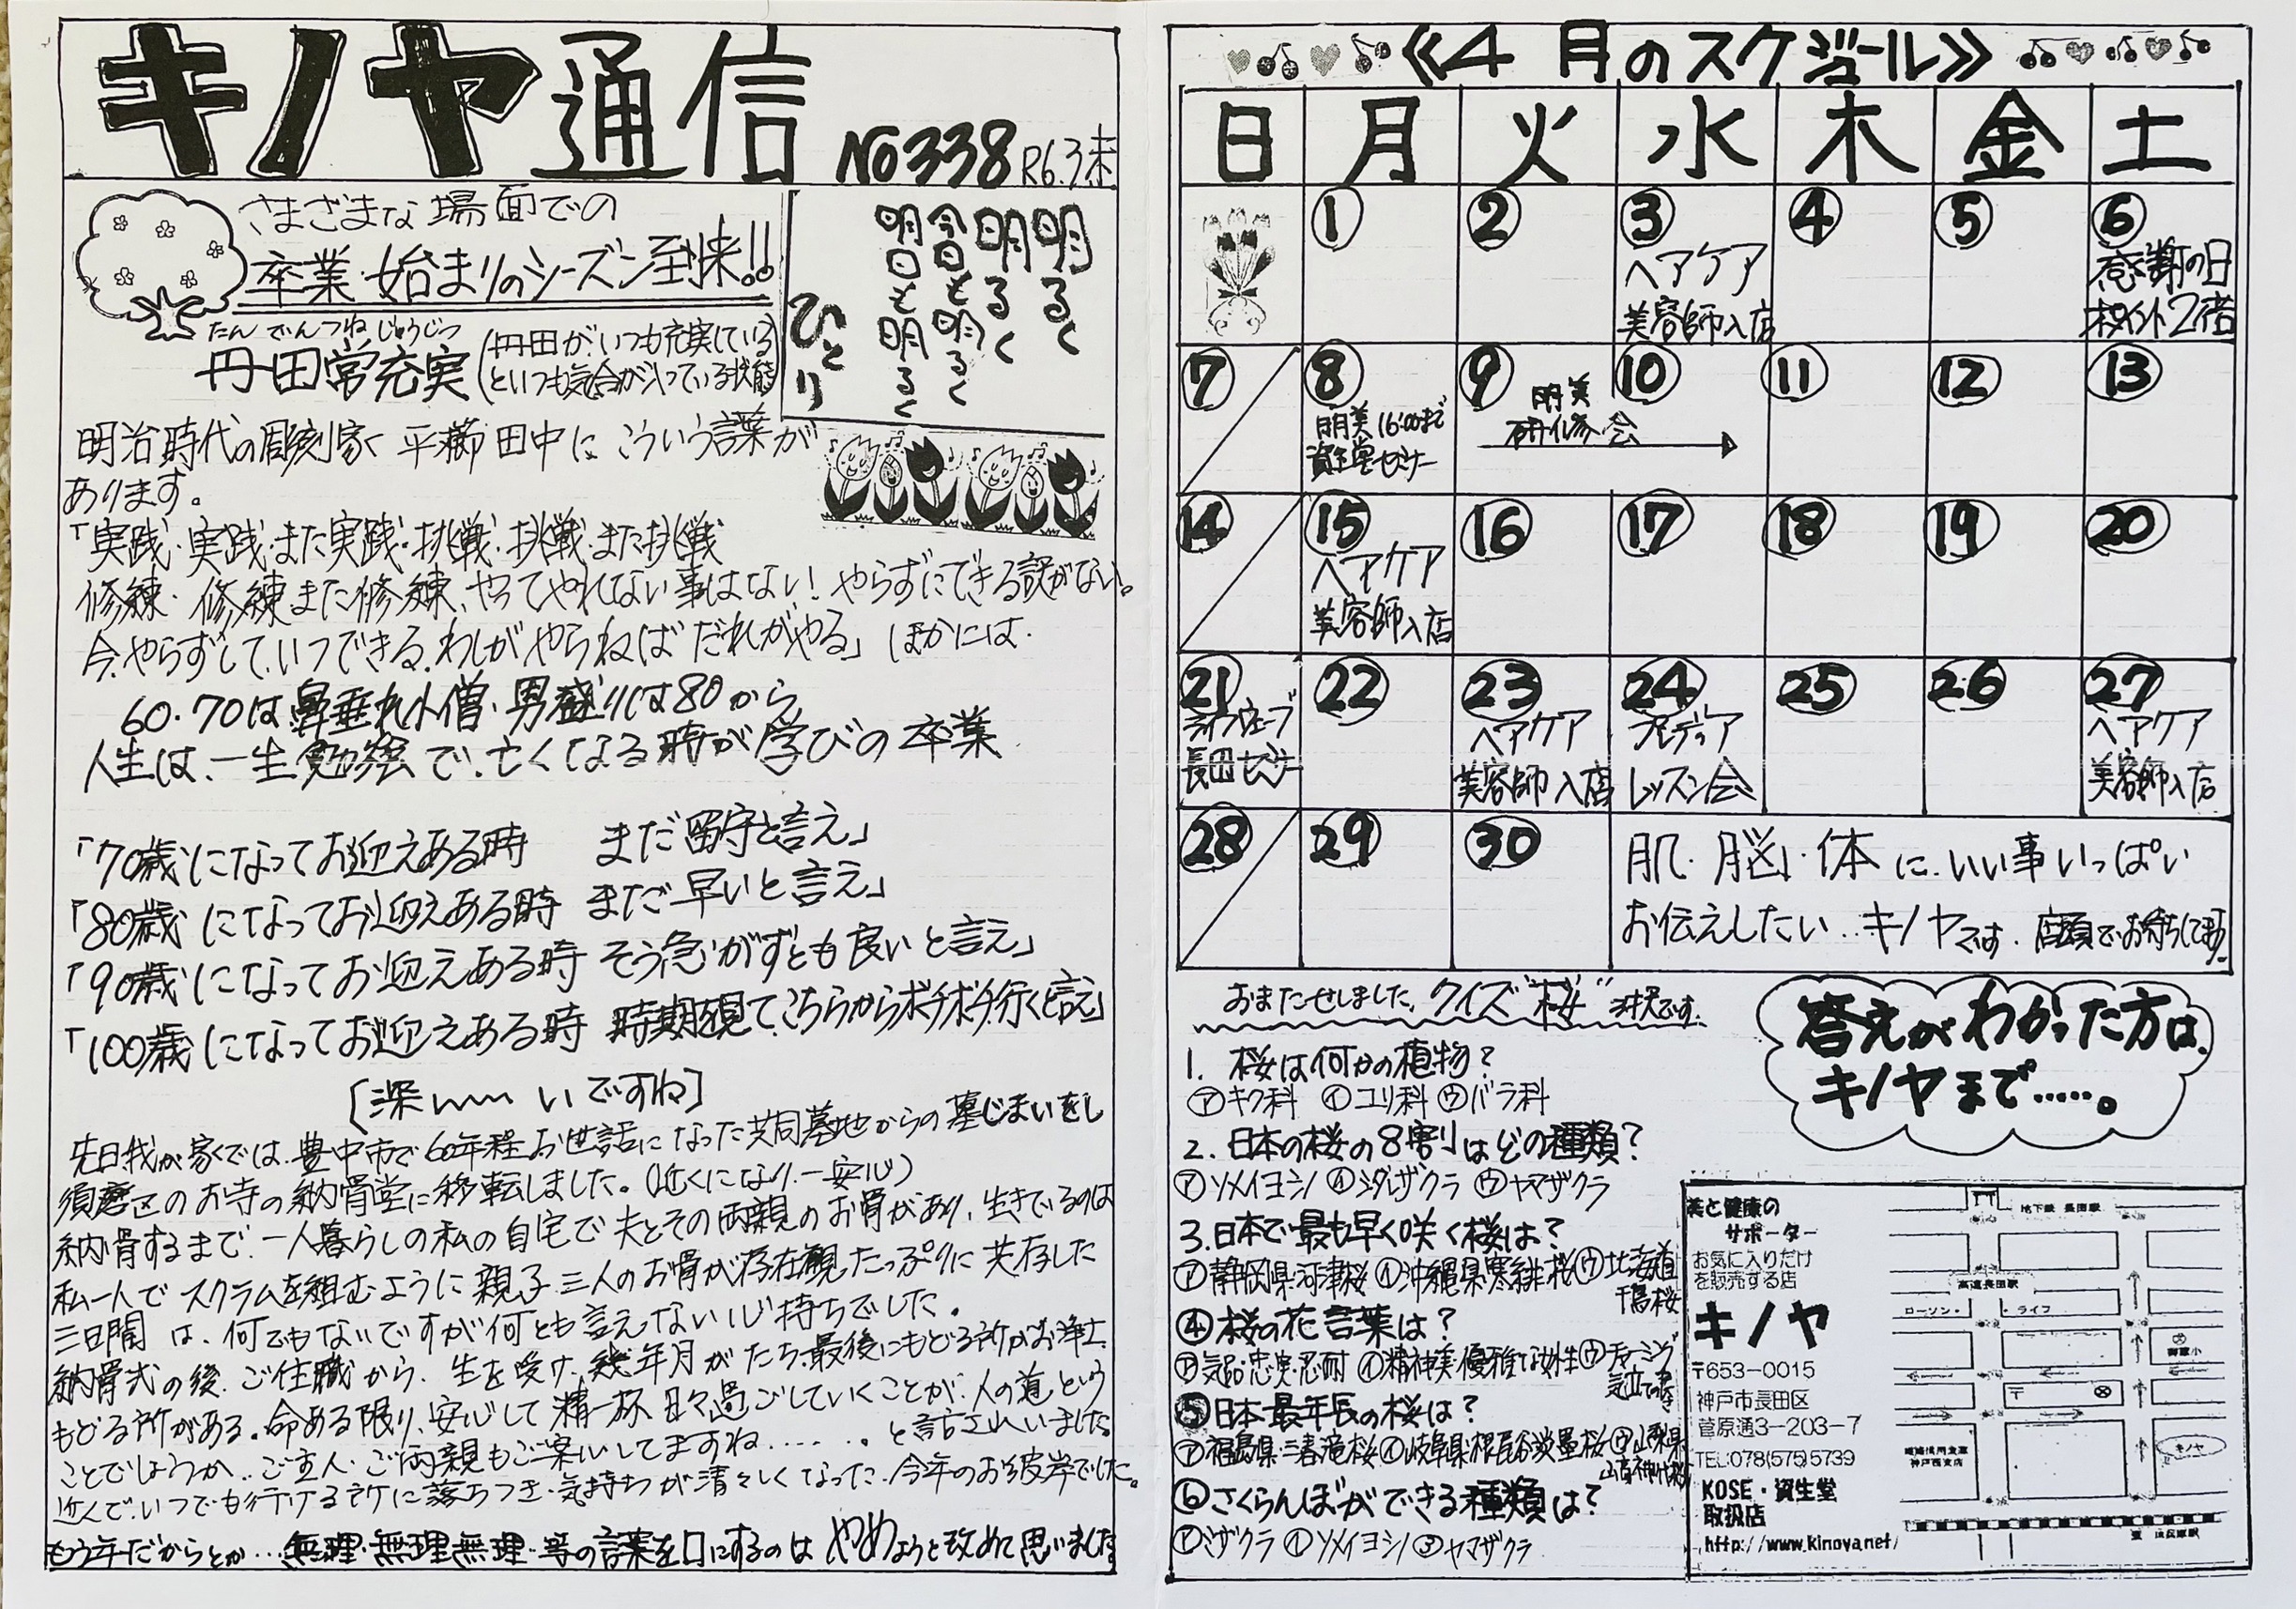 キノヤ通信 No338 R6.3末
さまざまな場面での
卒業・始まりのシーズン到来!!
たんでんつねじゅうじつ
丹田常充実
(丹田がいつも充実している
といつも気合が入っている状態)
明るく
明るく
今日も明るく
明日も明るく
ひとり
明治時代の彫刻家 平櫛田中に こういう言葉が
あります。
「実践・実践・また実践・挑戦・挑戦・また挑戦
修練・修練また修練、やってやれない事はない！やらずにできる訳がない。
今、やらずして、いつできる、わしがやらねばだれがやる」ほかには・
60・70は鼻垂れ小僧・男盛りは80から
人生は、一生勉強で、亡くなる時が学びの卒業
「70歳になってお迎えある時 まだ留守と言え」
「80歳になってお迎えある時 まだ早いと言え」
「90歳になってお迎えある時 そう急がずとも良いと言え」
「100歳になってお迎えある時 時期を見て、こちらからボチボチ行くと言え」
[深〜〜いですね]
先日我が家では、豊中市で60年程お世話になった共同墓地からの墓じまいをし
須磨区のお寺の納骨堂に移転しました。(近くになり、一安心)
納骨するまで、一人暮らしの私の自宅で夫とその両親のお骨があり、生きているのは
私一人でスクラムを組むように親子三人のお骨が存在観たっぷりに共存した
三日間は、何でもないですが何とも言えない心持ちでした。
納骨式の後、ご住職から、生を受け、幾年月がたち、最後にもどる所がお浄土
もどる所がある。命ある限り、安心して精一杯 日々過ごしていくことが、人の道という
ことでしょうか、ご主人・ご両親もご安心してますね.....。と言われいました。
近くで、いつでも行ける所に落ちつき・気持ちが清々しくなった、今年のお彼岸でした。
もう年だからとか...無理・無理・無理・等の言葉を口にするのはやめようと改めて思いました
《4月のスケジュール》
日 月 火 水 木 金 土
① ② ③ ④ ⑤ ⑥
ヘアケア
美容師入店
感謝の日
ポイント2倍
⑦ ⑧ ⑨ ⑩ ⑪ ⑫ ⑬
明美16:00まで
資生堂セミナー
明美
研修会
⑭ ⑮ ⑯ ⑰ ⑱ ⑲ ⑳
ヘアケア
美容師入店
21 22 23 24 25 26 27
ライフウェーブ
長田セミナー
ヘアケア
美容師入店
レッスン会
ヘアケア
美容師入店
28 29 30
肌・脳・体に、いい事いっぱい
お伝えしたい..キノヤです、店頭でお待ちしてます
おまたせしました、クイズ"桜"
答えがわかった方は、
キノヤまで.....。
1. 桜は何かの植物？
㋐キク科 ㋑ユリ科 ㋒バラ科
2. 日本の桜の8割はどの種類？
㋐ソメイヨシノ ㋑シダレザクラ ㋒ヤマザクラ
3. 日本で最も早く咲く桜は？
㋐静岡県・河津桜 ㋑沖縄県寒緋桜 ㋒北海道
千島桜
④桜の花言葉は？
㋐気品・忠実・忍耐 ㋑精神美・優雅な女性 ㋒チャーミング
⑤日本最年長の桜は？
㋐福島県・三春滝桜 ㋑岐阜県・根尾谷淡墨桜 ㋒山梨県
山高神代桜
⑥さくらんぼができる種類は？
㋐ミザクラ ㋑ソメイヨシノ ③ヤマザクラ
美と健康の
サポーター
お気に入りだけ
を販売する店
キノヤ
〒653-0015
神戸市長田区
菅原通3-203-7
TEL:078(575)5739
KOSE・資生堂
取扱店
http://www.kinoya.net/
地下鉄 長田駅
高速長田駅
ローソン・ ・ライフ
御蔵小
〒
神戸西支店
キノヤ
JR兵庫駅